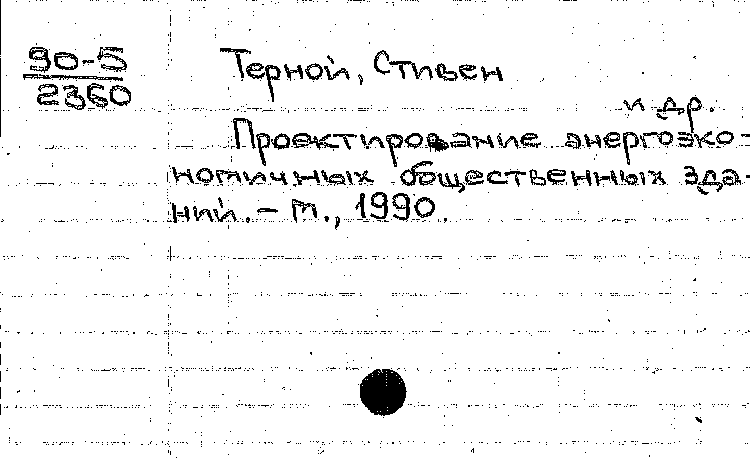 90-5
2360
Терной, Стивен
и др.
Проектирование энергоэко-
номичных общественных зда-
ний. – М., 1990.